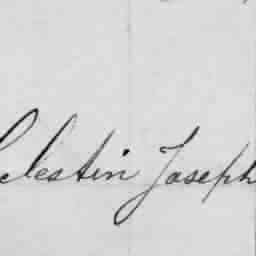 Celestin Joseph